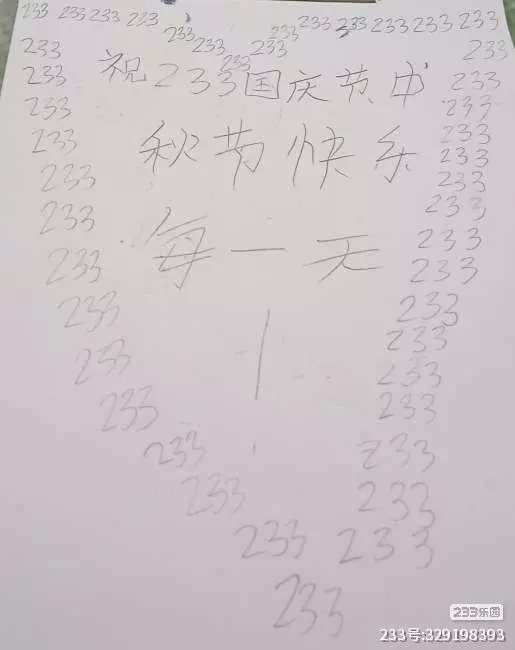 233 233 233 233 233 233 233 233 233 233 233 233
233 233 233 233
233 233 233
祝233国庆节中
233 233
233 233
秋节快乐
233 233
233 233
233 233
每一天
233 233
233 233
233
233
233 233
233 233
233 233
233 233
233 233
233 233
233
233乐园
233号:329198393